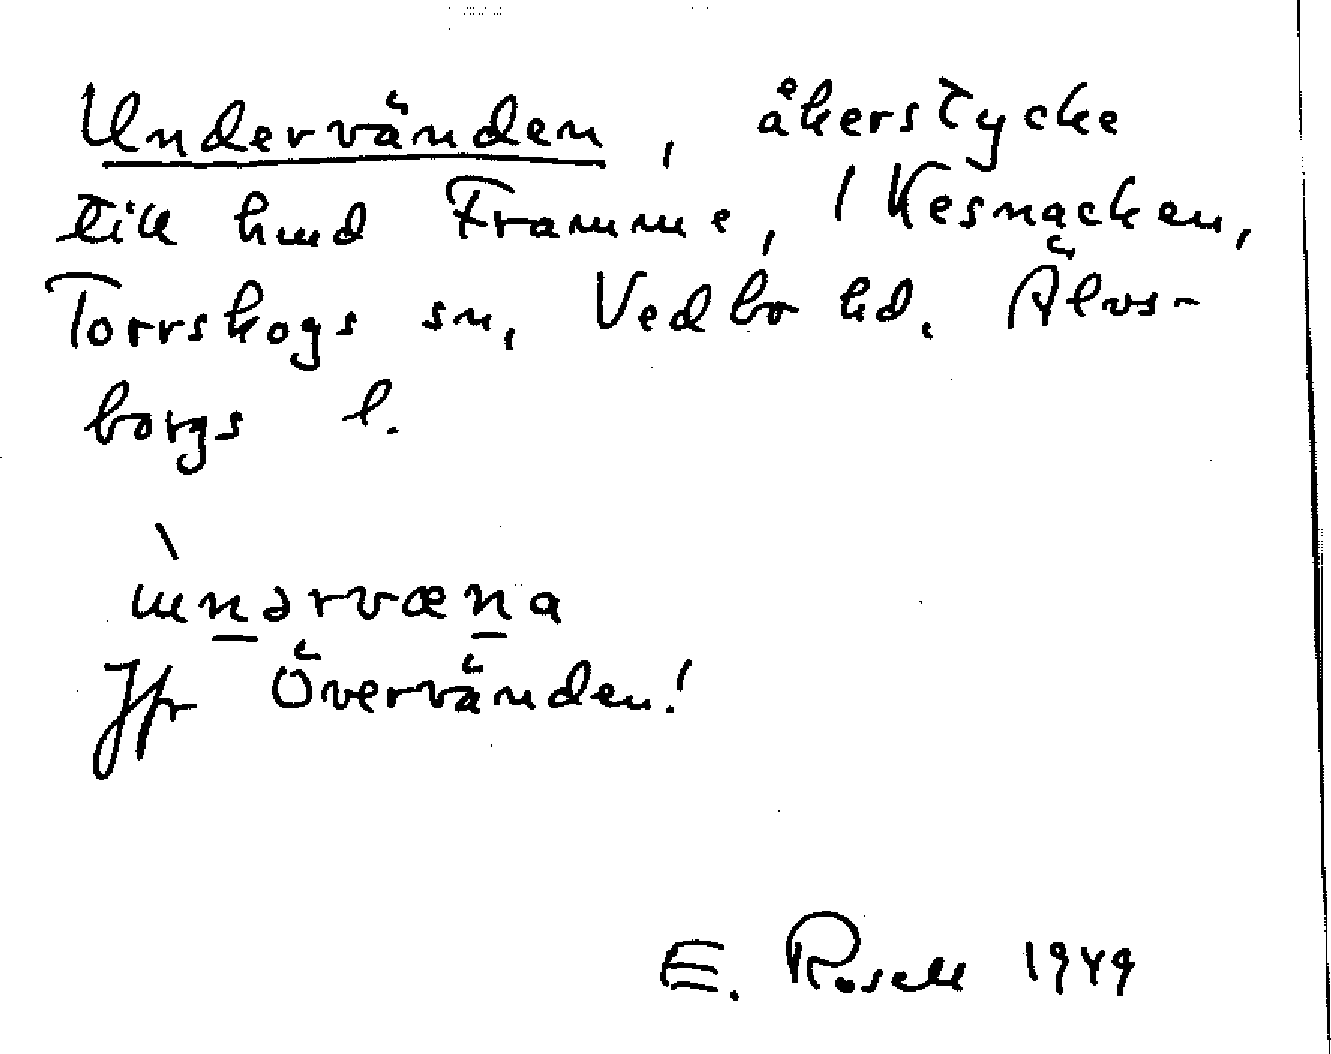 Undervänden, åkerstycke
till hmd Framme, 1 Kesnacken,
Torrskogs sn, Vedbo hd. Älvs-
borgs l.
ɯnərvæna
Jfr Övervänden!
E. Rosell 1949